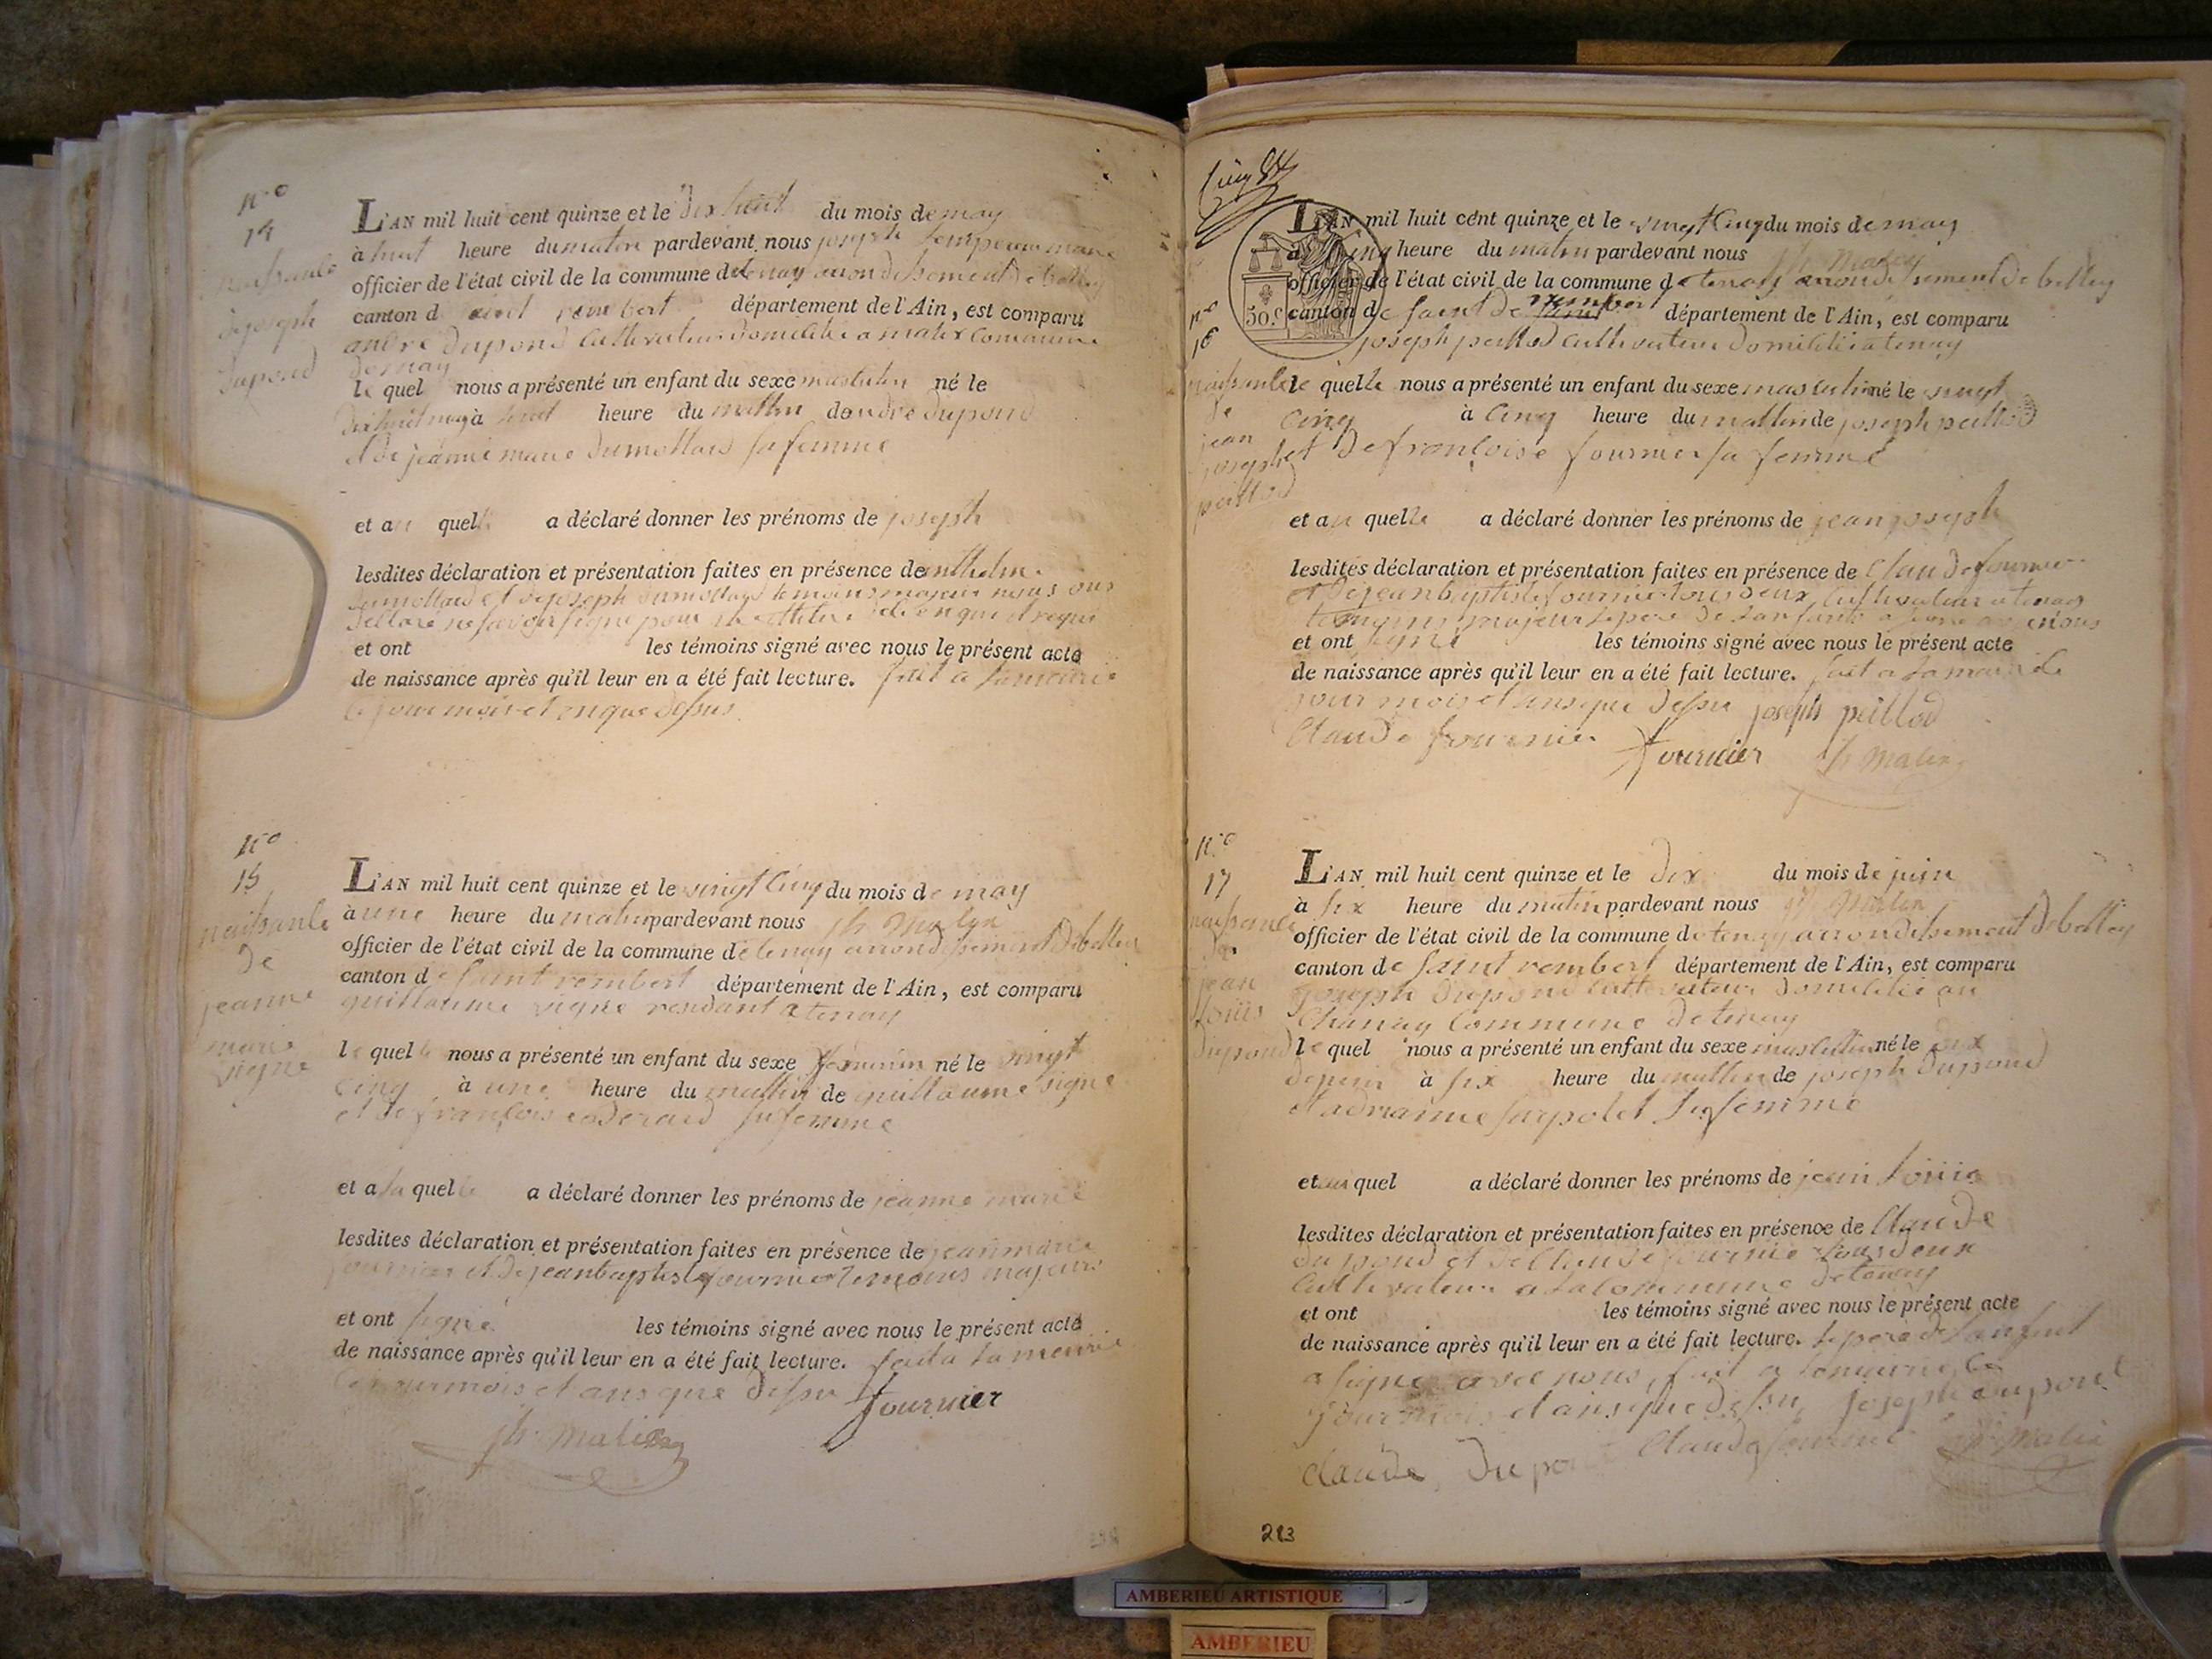 n.o
14
naissance
de joseph
dupond
L'AN mil huit cent quinze et le dix huit du mois de may
à huit heure du matin pardevant nous joseph
officier de l'état civil de la commune de tenay arrondissement de belley
canton de saint rembert département de l'Ain, est comparu
andre dupond cultivateur domicilie a malix commune
de tenay
le quel nous a présenté un enfant du sexe masculin né le
dix huit may à huit heure du mattin de andre dupond
et de jeanne marie dumollard sa femme
et au quel a déclaré donner les prénoms de joseph
lesdites déclaration et présentation faites en présence de anthelme
dumollard et de joseph dumollard temoins majeur nous ons
declare ne savoir signe pour enqui et requi
et ont les témoins signé avec nous le présent acte
de naissance après qu'il leur en a été fait lecture. fait a la mairie
le jour mois et an que dessus
n.o
15
naissance
de
jeanne
marie
vigne
L'AN mil huit cent quinze et le vingt cinq du mois de may
à une heure du matin pardevant nous jh. Malix
officier de l'état civil de la commune de tenay arrondissement de belley
canton de saint rembert département de l'Ain, est comparu
guillaume vigne residant a tenay
le quel nous a présenté un enfant du sexe feminin né le vingt
cinq à une heure du mattin de guillaume vigne
et de françoise sa femme
et a la quelle a déclaré donner les prénoms de jeanne marie
lesdites déclaration et présentation faites en présence de jean marie
fournier et de jean baptiste fournier temoins majeurs
et ont signé les témoins signé avec nous le présent acte
de naissance après qu'il leur en a été fait lecture. fait a la mairie
le jour mois et ans que dessu fournier
jh. Malix
50.c
n.o
16
naissance
de
jean
joseph
peillod
L'AN mil huit cent quinze et le vingt cinq du mois de may
à cinq heure du matin pardevant nous jh Malix
officier de l'état civil de la commune de tenay arrondissement de belley
canton de saint de rember département de l'Ain, est comparu
joseph peillod cultivateur domicilie a tenay
le quelle nous a présenté un enfant du sexe masculin né le vingt
cinq à cinq heure du mattin de joseph peillod
et de françoise fournier sa femme
et au quelle a déclaré donner les prénoms de jean joseph
lesdites déclaration et présentation faites en présence de Claude fournier
et de jean baptiste fournier tous deux cultivateur a tenay
temoins majeur le pere de l'anfant a signe avec nous
et ont signé les témoins signé avec nous le présent acte
de naissance après qu'il leur en a été fait lecture. fait a la mairie le
jour mois et ans que dessu joseph peillod
Claude fournier
fournier jh Malix
n.o
17
naissance
de
jean
louis
dupond
L'AN mil huit cent quinze et le dix du mois de juin
à six heure du matin pardevant nous jh Malix
officier de l'état civil de la commune de tenay arrondissement de belley
canton de saint rembert département de l'Ain, est comparu
joseph dupond cultivateur domicilie au
Chanay commune de tenay
le quel nous a présenté un enfant du sexe masculin né le dix
de juin à six heure du mattin de joseph dupond
et adrianne surpolet sa femme
et au quel a déclaré donner les prénoms de jean louis
lesdites déclaration et présentation faites en présence de Claude
dupond et de Claude fournier tous deux
cultivateur a la commune de tenay
et ont les témoins signé avec nous le présent acte
de naissance après qu'il leur en a été fait lecture. le pere de l'anfant
a signe avec nous, fait a la mairie le
jour mois et ans que dessu joseph dupont
claude dupont Claude fournier jh Malix
213
AMBERIEU ARTISTIQUE
AMBERIEU